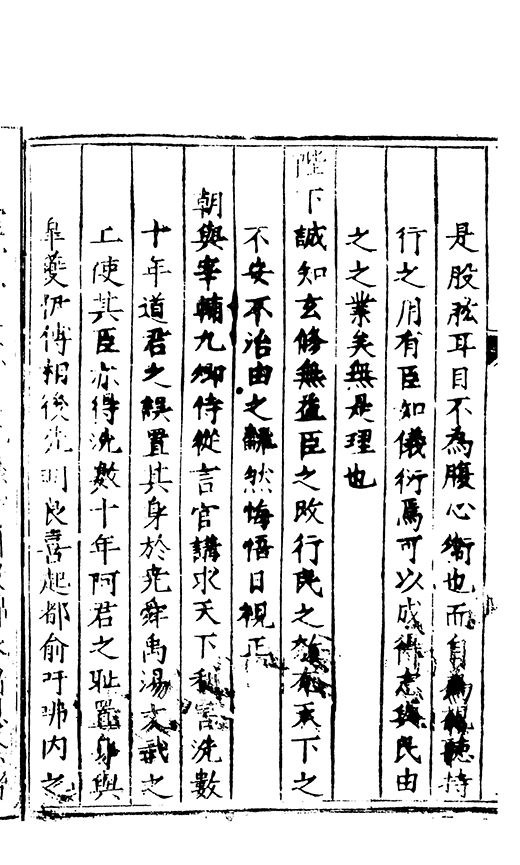 是股肱耳目不為腹心衛也而自為視聽持
行之用有臣如儀衍焉可以成得志與民由
之之業矣無是理也
陛下誠知玄修無益臣之改行民之尤天下之
不安不治由之翻然悔悟日視正
朝與宰輔九卿侍從言官講求天下利害洗數
十年道君之誤置其身於堯舜禹湯文武之
上使其臣亦得洗數十年阿君之恥置身與
皋夔伊傅相後先明良喜起都俞吁咈內之